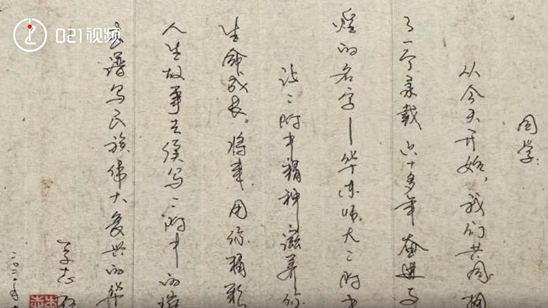 021视频
同学:
从今天开始，我们共同拥
了一个承载六十多年奋进与
煌的名字——华东师大二附中
让二附中精神滋养你
生命成长。将来，用你
人生故事去续写二附中的
去谱写民族伟大复兴的华